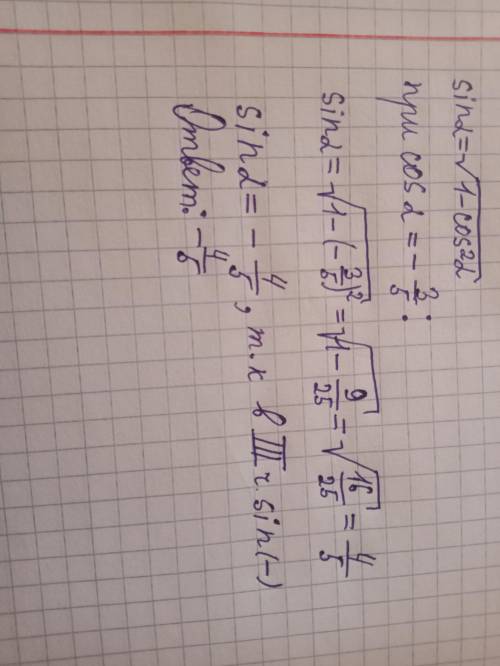 sinα=√1-cos²α
при cosα = -3/5:
sinα = √1-(-3/5)² = √1-9/25 = √16/25 = 4/5
sinα = -4/5, т.к в III ч. sin(-)
Ответ: -4/5